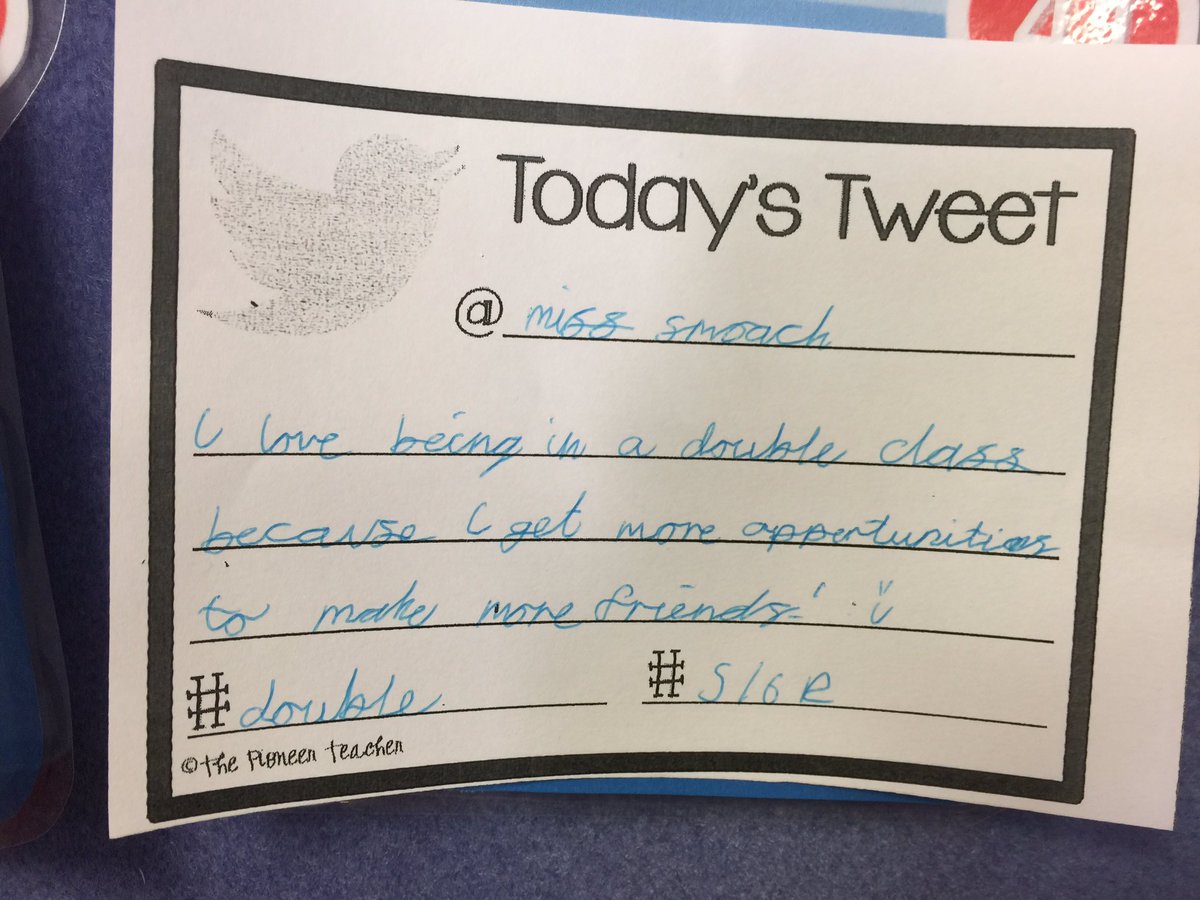 Today's Tweet
@ miss smoach
I love being in a double class
because I get more oppertunities
to make more friends!
#double #S16R
©The Pioneer Teacher